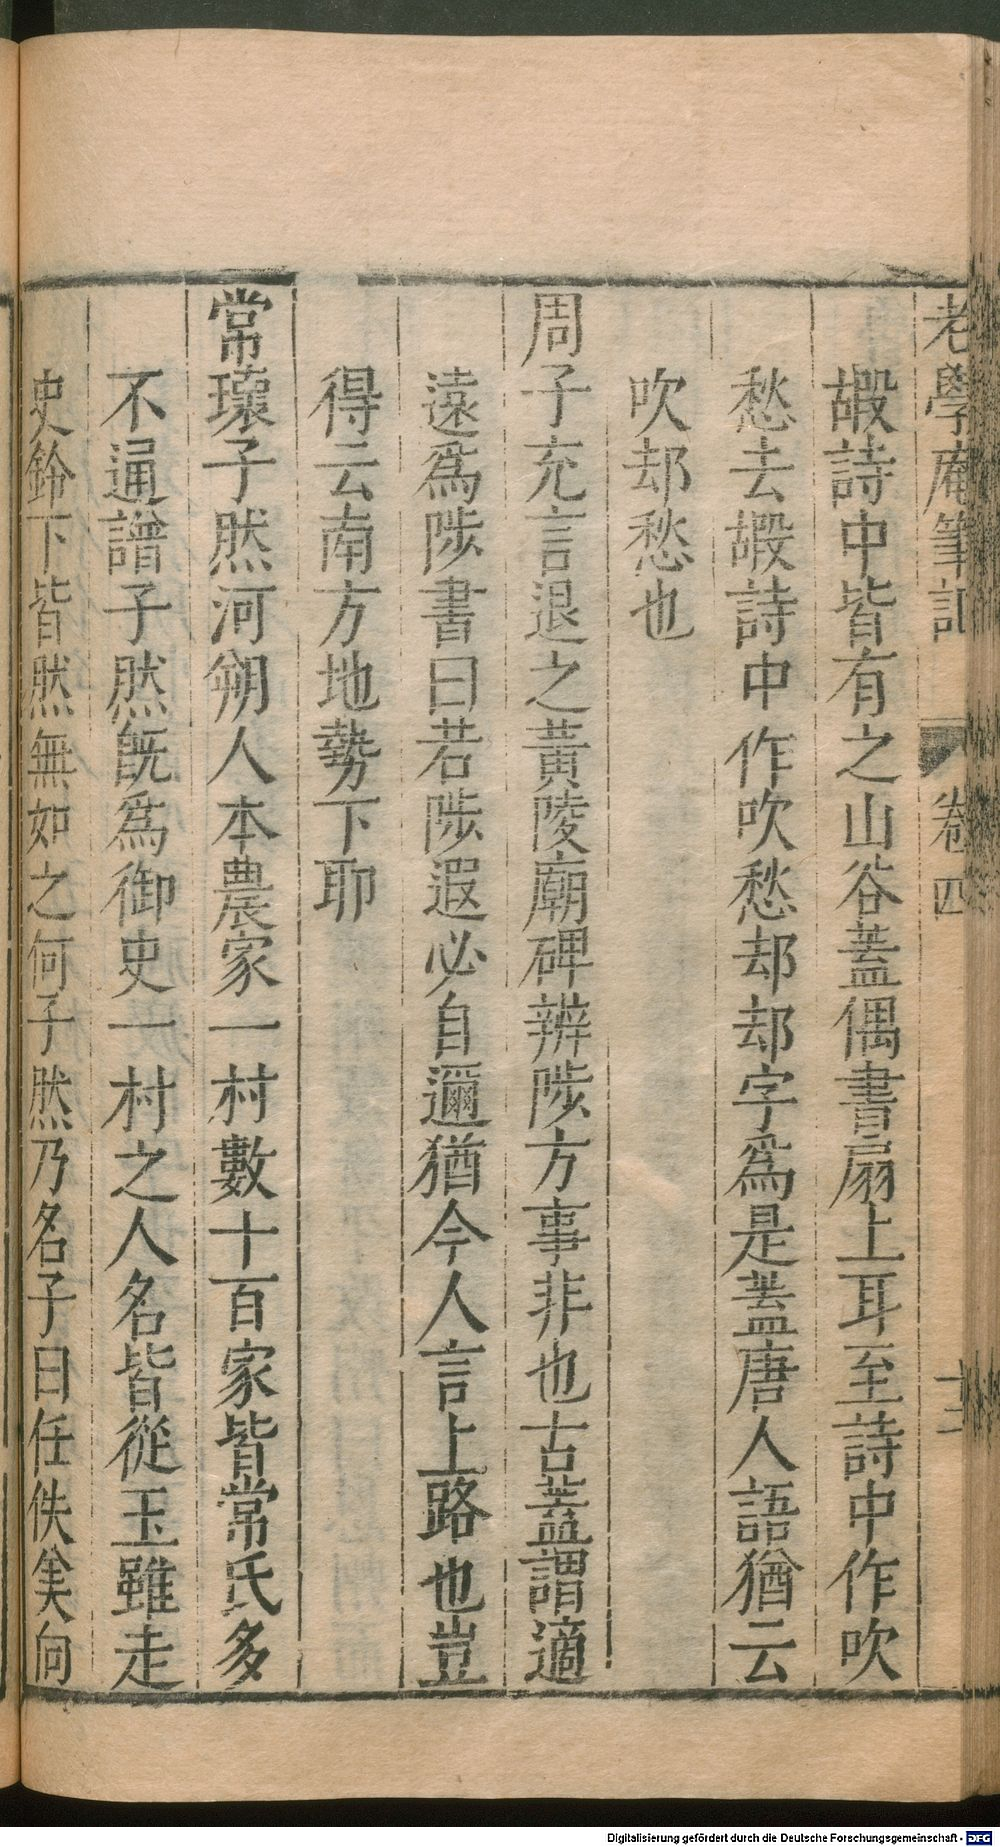 老學庵筆記 卷四 十二
嘏詩中皆有之山谷蓋偶書扇上耳至詩中作吹
愁去嘏詩中作吹愁却却字爲是蓋唐人語猶云
吹却愁也
周子充言退之黃陵廟碑辨陟方事非也古蓋謂適
遠爲陟書曰若陟遐必自邇猶今人言上路也豈
得云南方地勢下耶
常瓌子然河朔人本農家一村數十百家皆常氏多
不通譜子然旣爲御史一村之人名皆從玉雖走
史鈴下皆然無如之何子然乃名子曰任佚美向
Digitalisierung gefördert durch die Deutsche Forschungsgemeinschaft - DFG